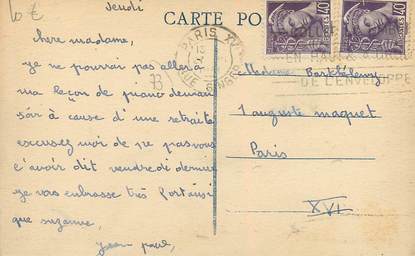 10€
Jeudi
CARTE PO
chere madame,
je ne pourrai pas aller a
ma leçon de piano demain
soir à cause d'une retraite
excusez moi de ne pas vous
l'avoir dit vendredi dernier
je vous embrasse très fort ainsi
que suzanne,
Jean paul,
PARIS XVI
RUE SINGER
40
40
EN HAUT à
DE L'ENVELOPPE
Madame Barthélemy
1 auguste maquet
Paris
XVI